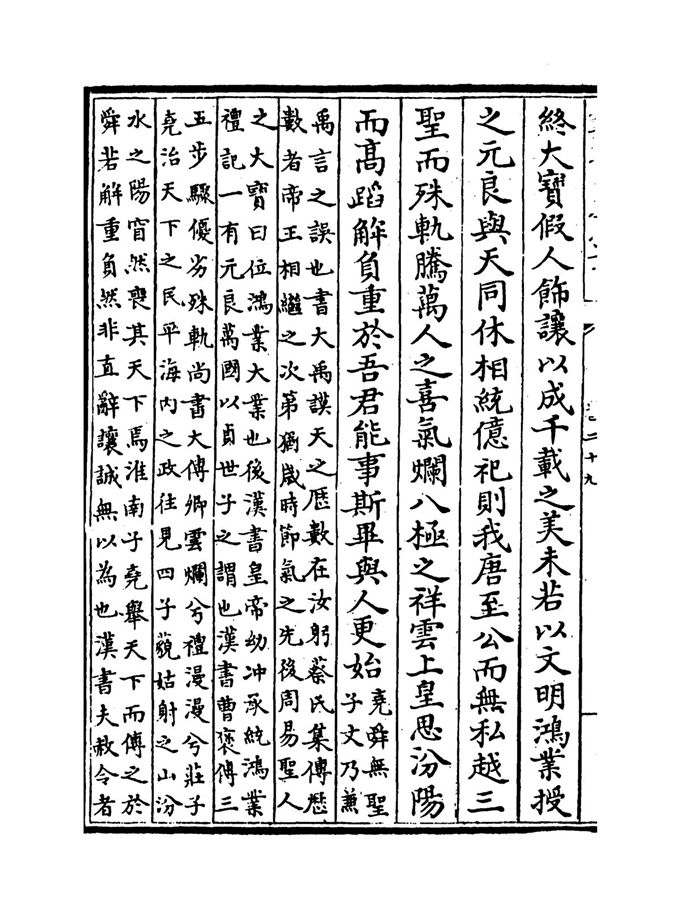 終大寳假人飾讓以成千載之美未若以文明鴻業授
之元良與天同休相統億祀則我唐至公而無私越三
聖而殊軌騰萬人之喜氣爛八極之祥雲上皇思汾陽
而髙蹈解負重於吾君能事斯畢與人更始堯舜無聖
子文乃兼
禹言之誤也書大禹謨天之厯數在汝躬蔡氏集傳厯
數者帝王相繼之次第猶嵗時節氣之先後周易聖人
之大寳曰位鴻業大業也後漢書皇帝幼冲承統鴻業
禮記一有元良萬國以貞世子之謂也漢書曹褒傳三
五步驟優劣殊軌尚書大傳卿雲爛兮禮漫漫兮莊子
堯治天下之民平海内之政往見四子藐姑射之山汾
水之陽窅然喪其天下焉淮南子堯舉天下而傳之於
舜若解重負然非直辭讓誠無以為也漢書夫赦令者
二十九